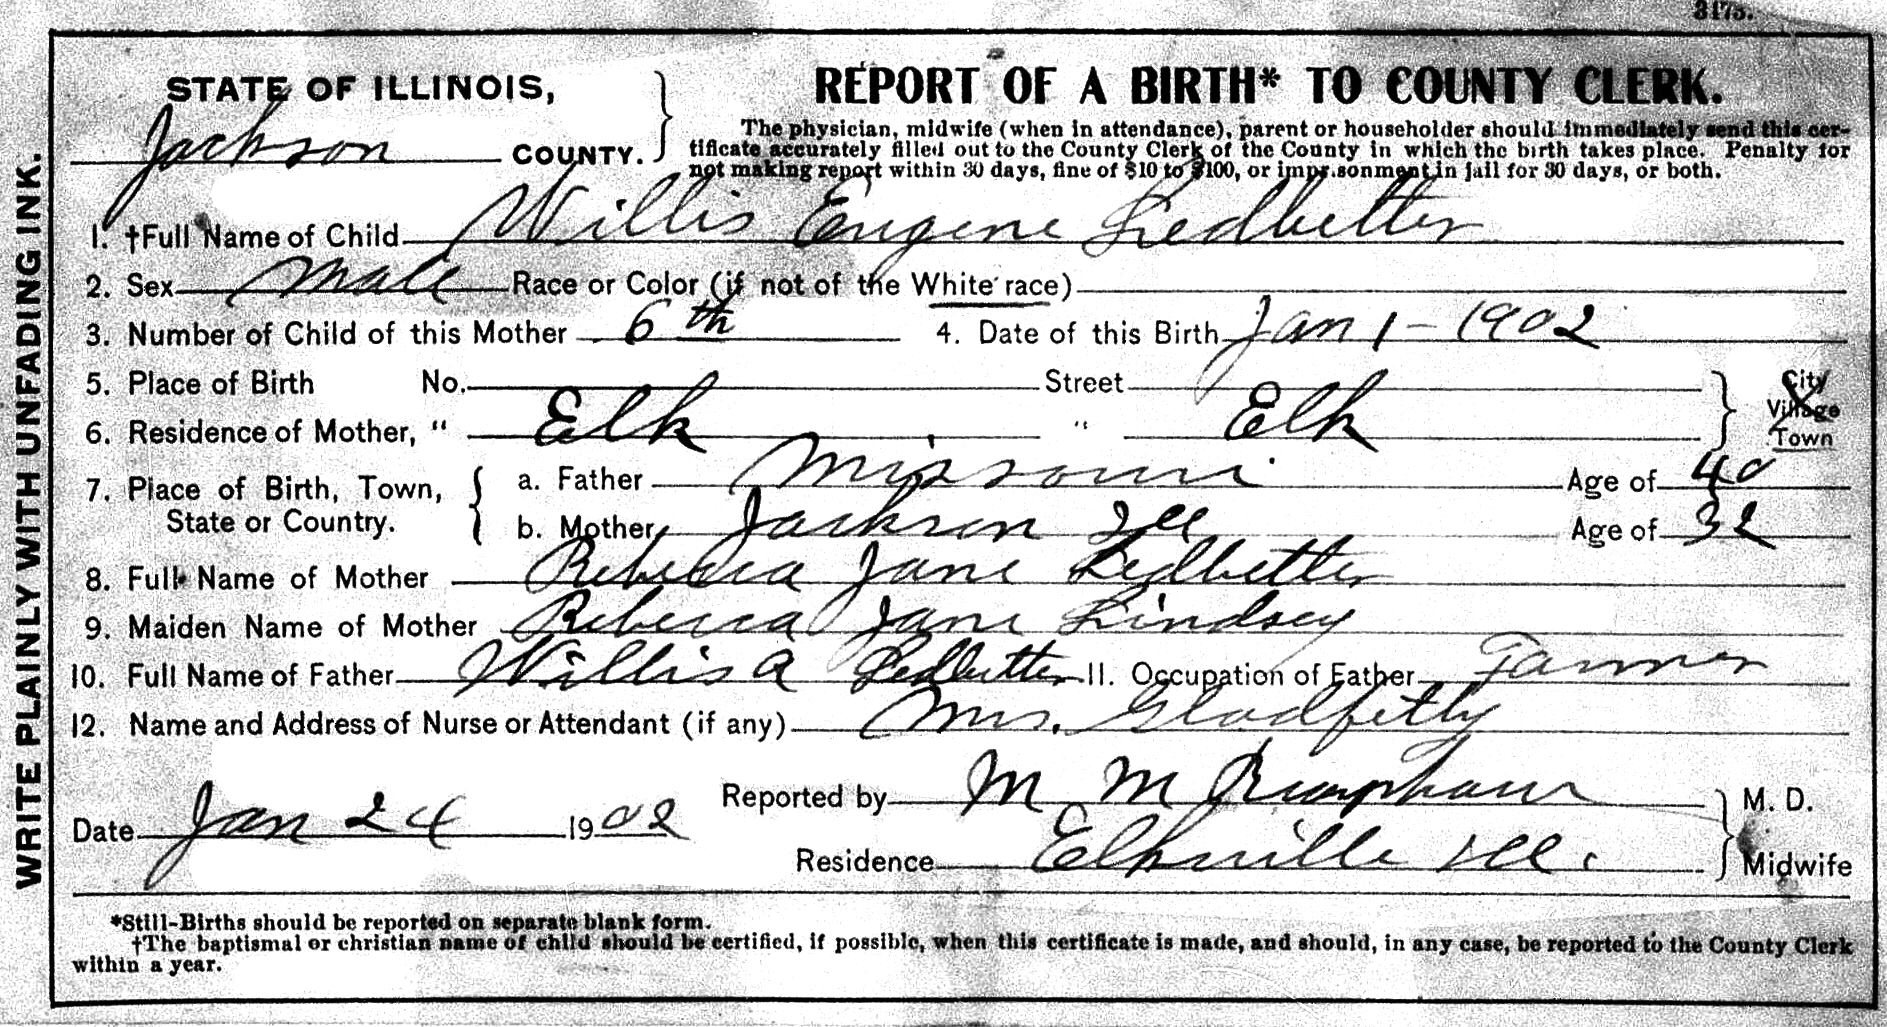 3175.
STATE OF ILLINOIS,
Jackson COUNTY.
REPORT OF A BIRTH* TO COUNTY CLERK.
The physician, midwife (when in attendance), parent or householder should immediately send this cer-
tificate accurately filled out to the County Clerk of the County in which the birth takes place. Penalty for
not making report within 30 days, fine of $10 to $100, or imprisonment in jail for 30 days, or both.
WRITE PLAINLY WITH UNFADING INK.
1. †Full Name of Child Willis Eugene Ledbetter
2. Sex Male Race or Color (if not of the White race)
3. Number of Child of this Mother 6th 4. Date of this Birth Jan 1 - 1902
5. Place of Birth No. Street City
Village
6. Residence of Mother, " Elk " Elk Town
7. Place of Birth, Town, State or Country. a. Father Missouri Age of 40
b. Mother Jackson Ill Age of 32
8. Full Name of Mother Rebecca Jane Ledbetter
9. Maiden Name of Mother Rebecca Jane Lindsey
10. Full Name of Father Willis A Ledbetter 11. Occupation of Father Farmer
12. Name and Address of Nurse or Attendant (if any) Mrs.
Reported by M M M. D.
Date Jan 24 1902
Residence Elkville Ill. Midwife
*Still-Births should be reported on separate blank form.
†The baptismal or christian name of child should be certified, if possible, when this certificate is made, and should, in any case, be reported to the County Clerk
within a year.